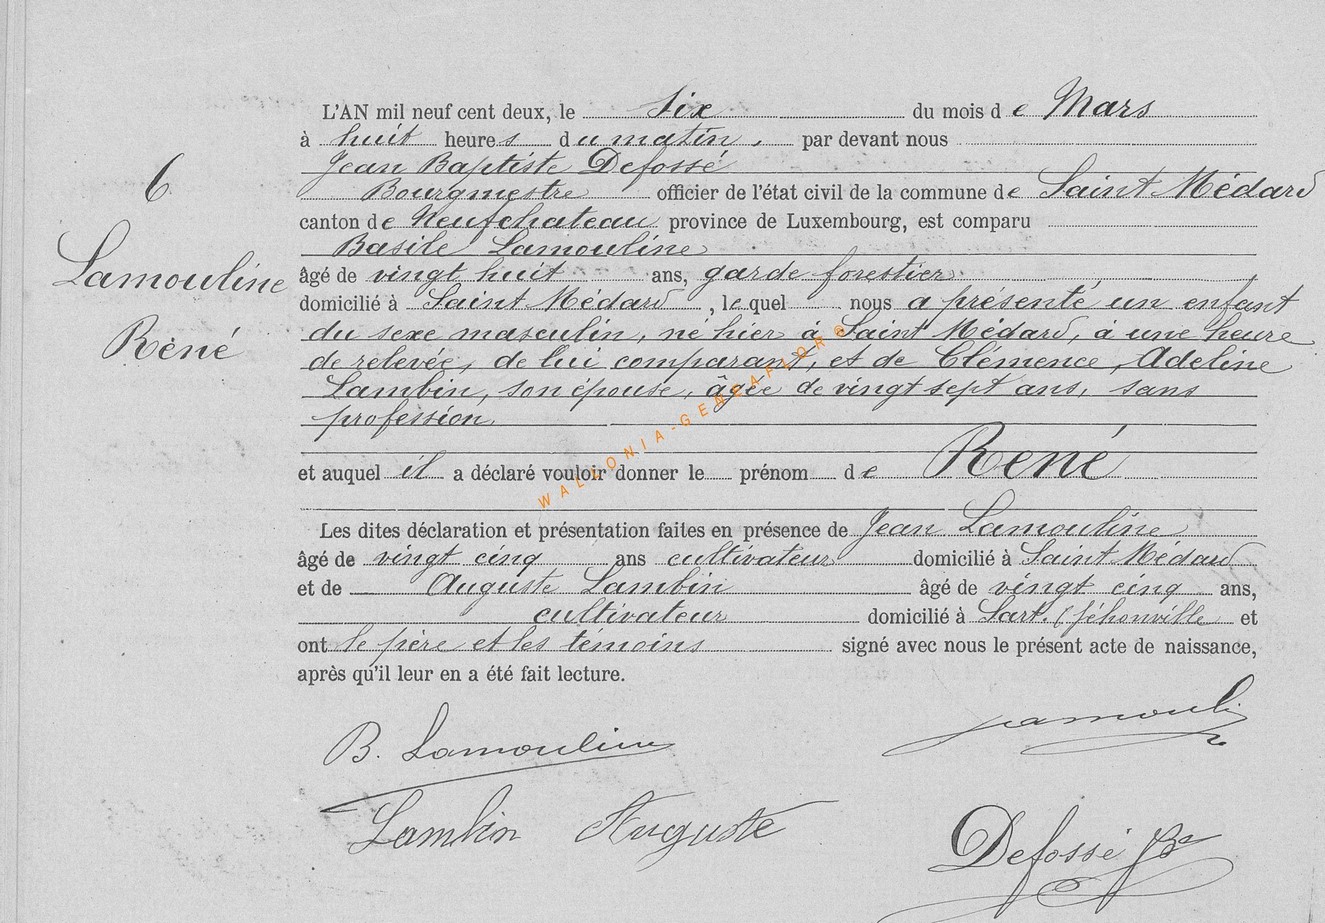 L'AN mil neuf cent deux, le six du mois de Mars
à huit heures du matin, par devant nous
Jean Baptiste Defossé
Bourgmestre officier de l'état civil de la commune de Saint Médard
canton de Neufchateau province de Luxembourg, est comparu
Basile Lamouline
âgé de vingt huit ans, garde forestier,
domicilié à Saint Médard, lequel nous a présenté un enfant
du sexe masculin, né hier à Saint Médard, à une heure
de relevée, de lui comparant, et de Clémence, Adeline
Lambin, son épouse, âgée de vingt sept ans, sans
profession,
et auquel il a déclaré vouloir donner le prénom de René
Les dites déclaration et présentation faites en présence de Jean Lamouline
âgé de vingt cinq ans cultivateur domicilié à Saint Médard
et de Auguste Lambin âgé de vingt cinq ans,
cultivateur domicilié à Sart. (Jéhonville et
ont le père et les témoins signé avec nous le présent acte de naissance,
après qu'il leur en a été fait lecture.
6
Lamouline
René
B. Lamouline
Lamouli
Lambin Auguste
Defossé JBte
WALLONIA-GENEAFLORE